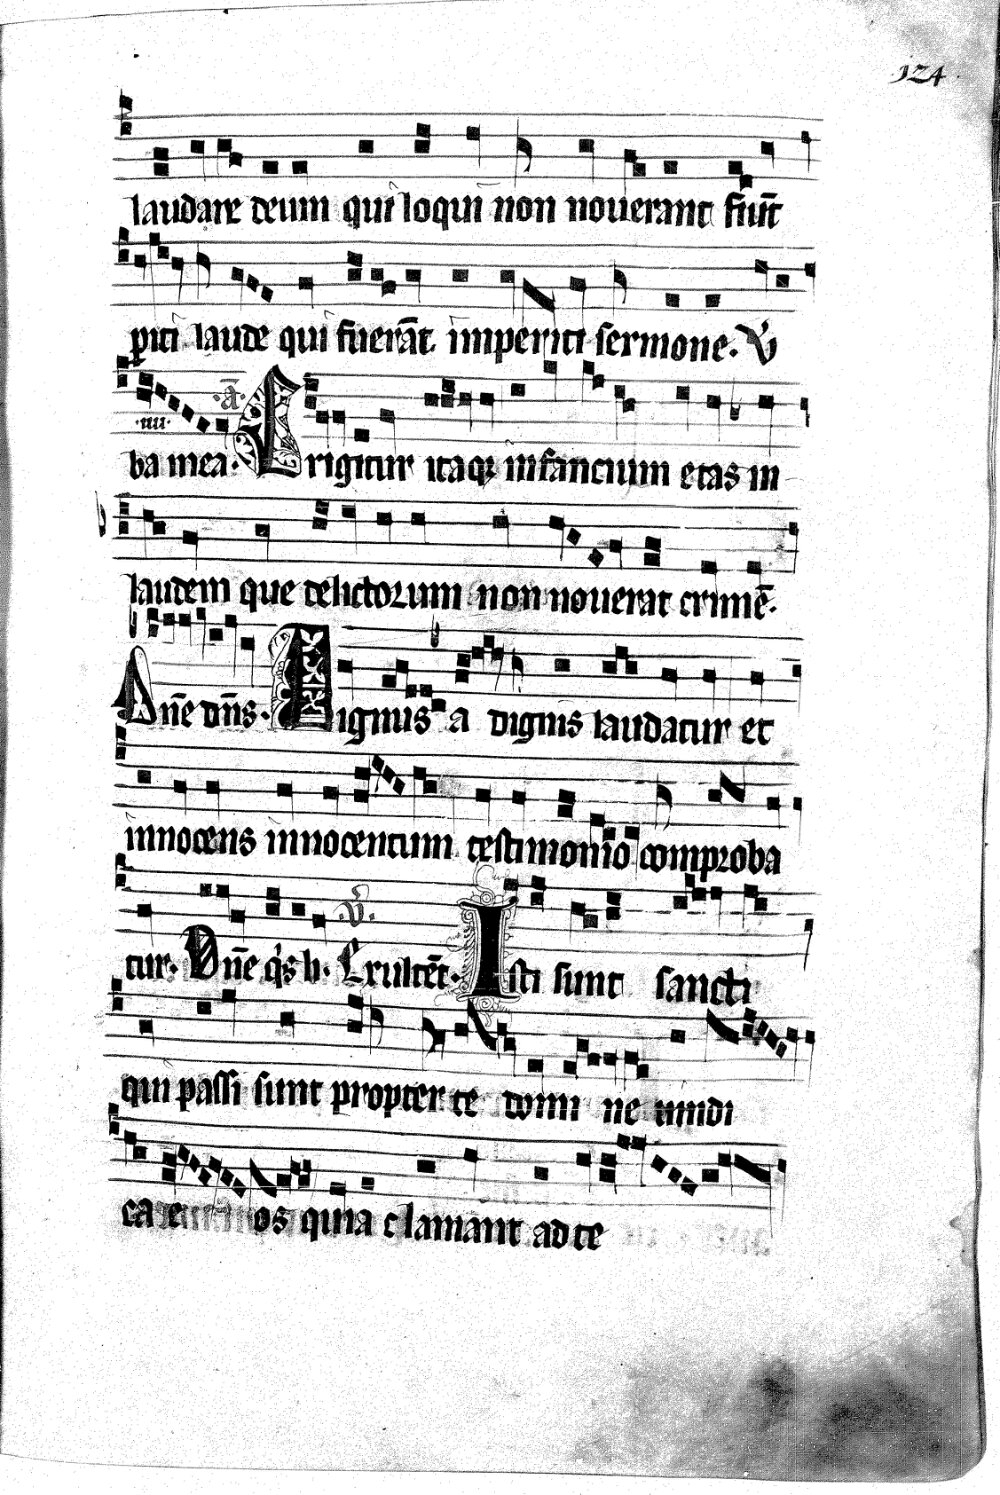 124
laudare deum qui loqui non nouerant fiūt
ꝑiti laude qui fuerāt imperiti sermone. V̓
.ā.
.iiii.
ba mea. Erigitur itaqꝫ infancium etas in
laudem que delictorum non nouerat crimē.
Dn̄e dn̄s. Dignus a dignis laudatur et
innocens innocentum testimonio comproba
tur. Dn̄e qͥs h. Exultēt. V̓. Isti sunt sancti
qui passi sunt propter te domi ne uindi
ca e os quia clamant ad te